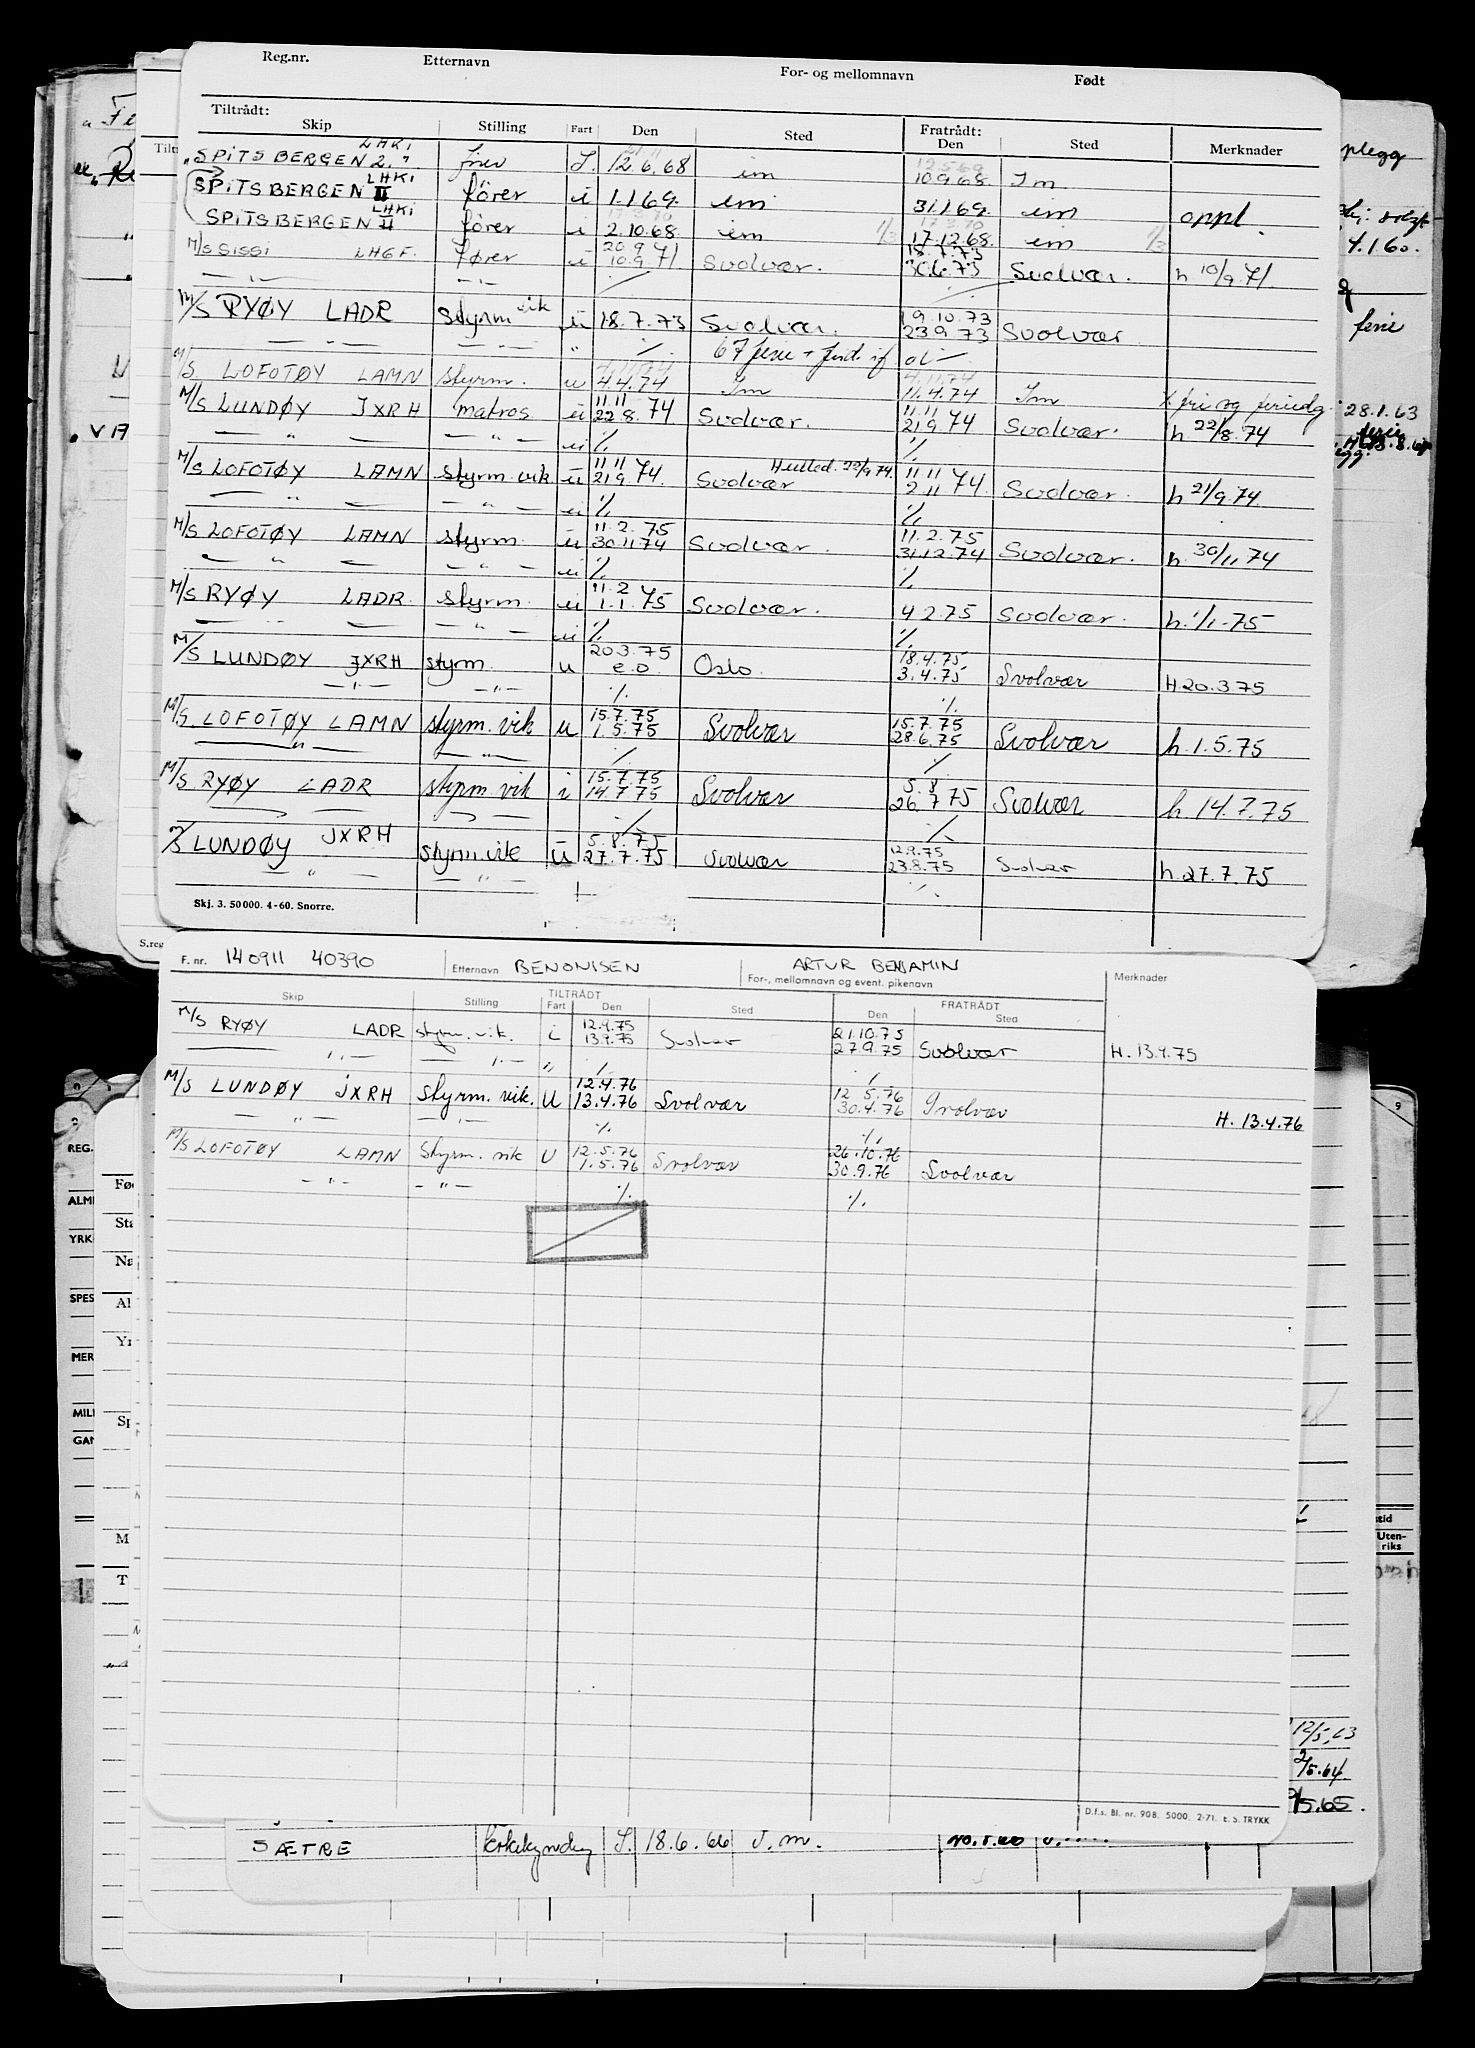 Reg.nr. Etternavn For- og mellomnavn Født
Tiltrådt: Fratrådt:
Skip Stilling Fart Den Sted Den Sted Merknader
SPITSBERGEN 2 LHKI fører 12.6.68 im 10.9.68 Im
SPITSBERGEN II LHKI fører i 1.1.69. im 31.1.69. im oppl.
SPITSBERGEN II LHKI fører i 2.10.68. im 17.12.68. im
M/S SISSI LHGF. fører i 20.9.71 10.9.71 Svolvær. 18.7.73 30.6.73 Svolvær. h 10/9.71.
M/S RYØY LADR styrm vik u 18.7.73 Svolvær. 19.10.73 23.9.73 Svolvær
M/S LOFOTØY LAMN styrm. u 4.4.74 Im 11.4.74 Im
M/S LUNDØY JXRH matros u 11.11 22.8.74 Svolvær. 11.11 21.9.74 Svolvær. h 22/8.74
M/S LOFOTØY LAMN styrm. vik u 11.11 21.9.74. Svolvær 11.11 2.11 74. Svolvær. h 21/9.74.
M/S LOFOTØY LAMN styrm. u 11.2.75 30.11.74 Svolvær. 11.2.75 31.12.74 Svolvær. h. 30/11.74
M/S RYØY LADR. styrm. u 11.2 1.1.75 Svolvær. 4.2.75 Svolvær. h. 1/1-75
M/S LUNDØY JXRH styrm. u 20.3.75 e.o Oslo. 18.4.75 3.4.75 Svolvær H.20.3.75
M/S LOFOTØY LAMN styrm. vik u 15.7.75 1.5.75 Svolvær 15.7.75 28.6.75 Svolvær h.1.5.75
M/S RYØY LADR styrm. vik i 15.7.75 14.7.75 Svolvær 5.8 26.7.75 Svolvær h. 14.7.75
M/S LUNDØY JXRH styrm. vik u 5.8.75 27.7.75 Svolvær 12.9.75 23.8.75 Svolvær h.27.7.75
Skj. 3. 50000. 4-60. Snorre.
F. nr. 140911 40390 Etternavn BENONISEN ARTUR BENJAMIN Merknader
For-, mellomnavn og event. pikenavn
TILTRÅDT FRATRÅDT
Skip Stilling Fart Den Sted Den Sted
M/S RYØY LADR styrm. vik. i 12.9.75 13.9.75 Svolvær 21.10.75 27.9.75 Svolvær H. 13.9.75
M/S LUNDØY JXRH Styrm. vik. U 12.4.76 13.4.76 Svolvær 12.5.76 30.4.76 Svolvær H. 13.4.76
M/S LOFOTØY LAMN Styrm. vik U 12.5.76 1.5.76 Svolvær 26.10.76 30.9.76 Svolvær
D.f.s. Bl. nr. 908. 5000. 2-71. E. S. TRYKK
SÆTRE 18.6.66
plegg
4.1.60.
ferie
28.1.63
V 17
S.reg
REG.
ALM
YRK
SPES
MER
MILI
GAN
Uten-
riks
12/5.63
2/5.64